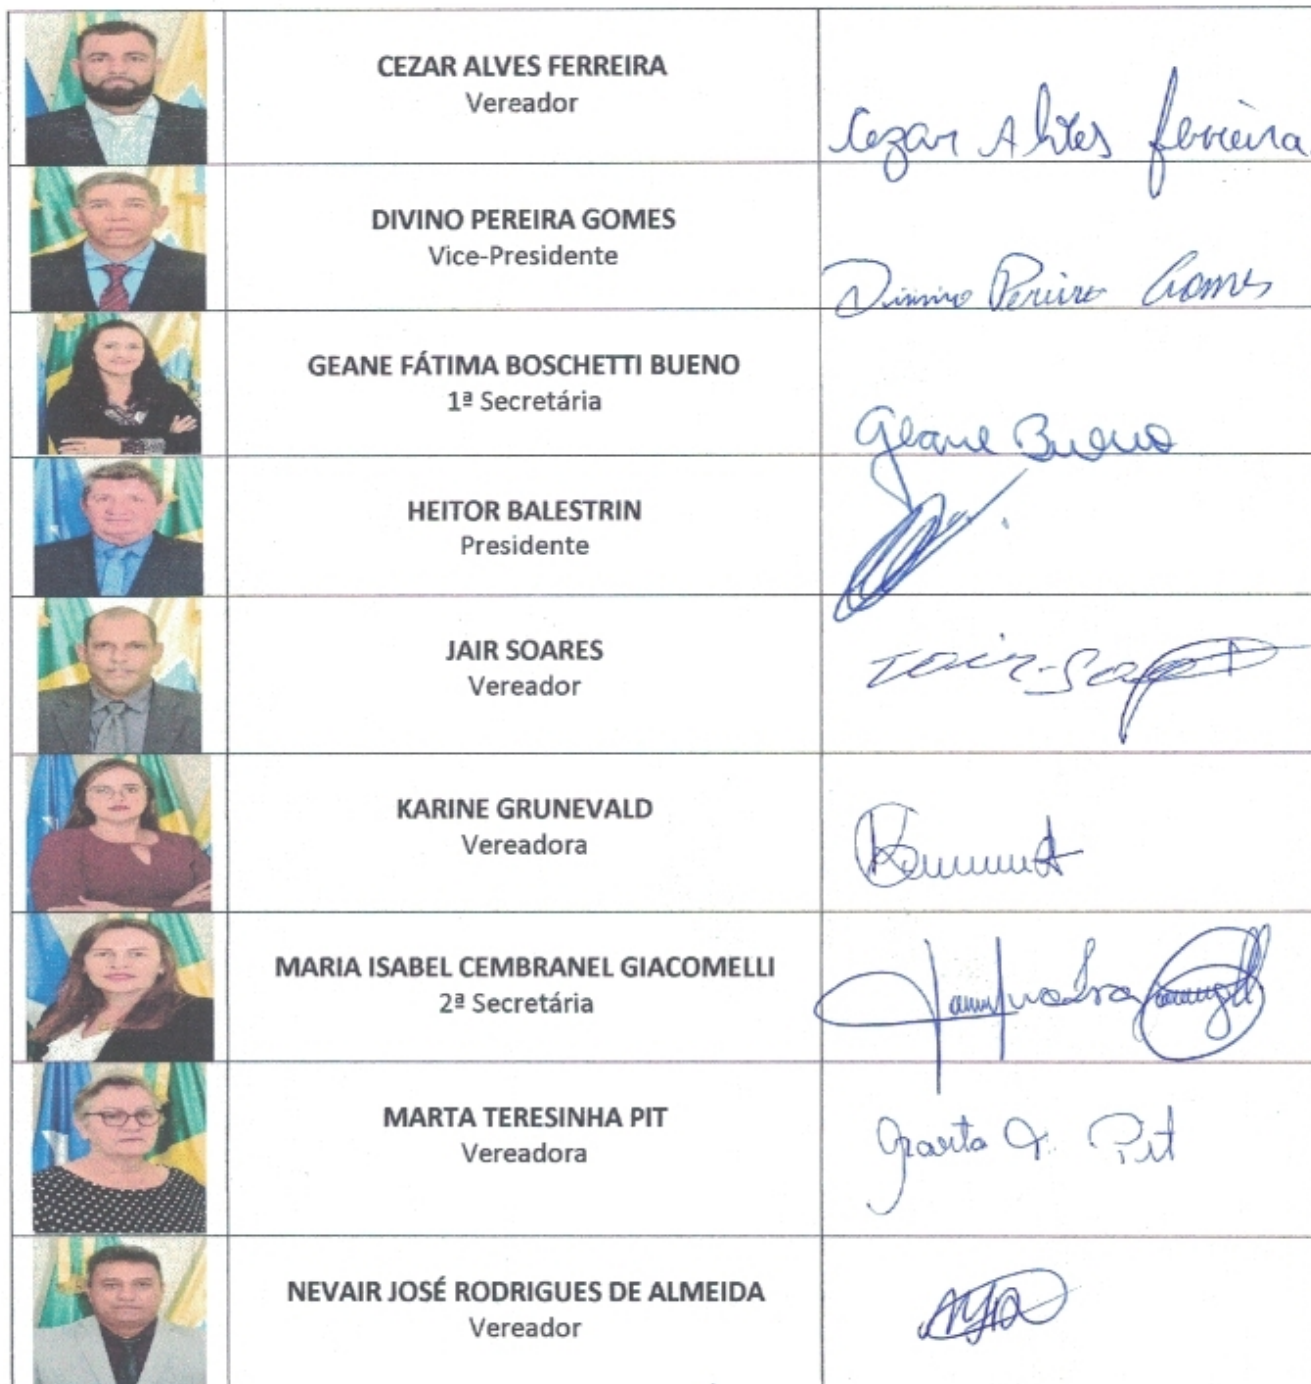 CEZAR ALVES FERREIRA
Vereador
Cezar Alves ferreira
DIVINO PEREIRA GOMES
Vice-Presidente
Divino Pereira Gomes
GEANE FÁTIMA BOSCHETTI BUENO
1ª Secretária
Geane Bueno
HEITOR BALESTRIN
Presidente
JAIR SOARES
Vereador
Jair
KARINE GRUNEVALD
Vereadora
MARIA ISABEL CEMBRANEL GIACOMELLI
2ª Secretária
MARTA TERESINHA PIT
Vereadora
Marta T. Pit
NEVAIR JOSÉ RODRIGUES DE ALMEIDA
Vereador